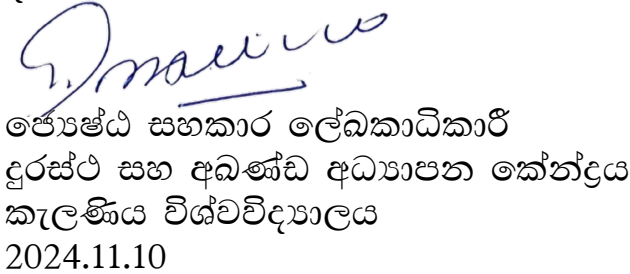 ජ්‍යෙෂ්ඨ සහකාර ලේඛකාධිකාරී
දුරස්ථ සහ අඛණ්ඩ අධ්‍යාපන කේන්ද්‍රය
කැලණිය විශ්වවිද්‍යාලය
2024.11.10